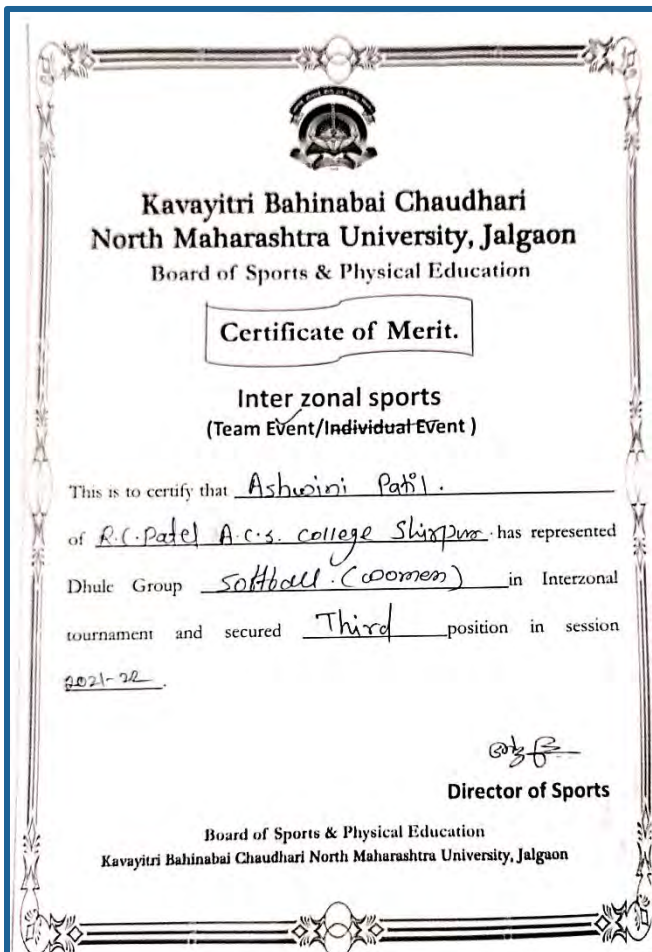 Kavayitri Bahinabai Chaudhari
North Maharashtra University, Jalgaon
Board of Sports & Physical Education
Certificate of Merit.
Inter zonal sports
(Team Event/Individual Event )
This is to certify that Ashwini Patil.
of R.C.Patel A.C.S. College Shirpur has represented
Dhule Group Softball (women) in Interzonal
tournament and secured Third position in session
2021-22.
Director of Sports
Board of Sports & Physical Education
Kavayitri Bahinabai Chaudhari North Maharashtra University, Jalgaon